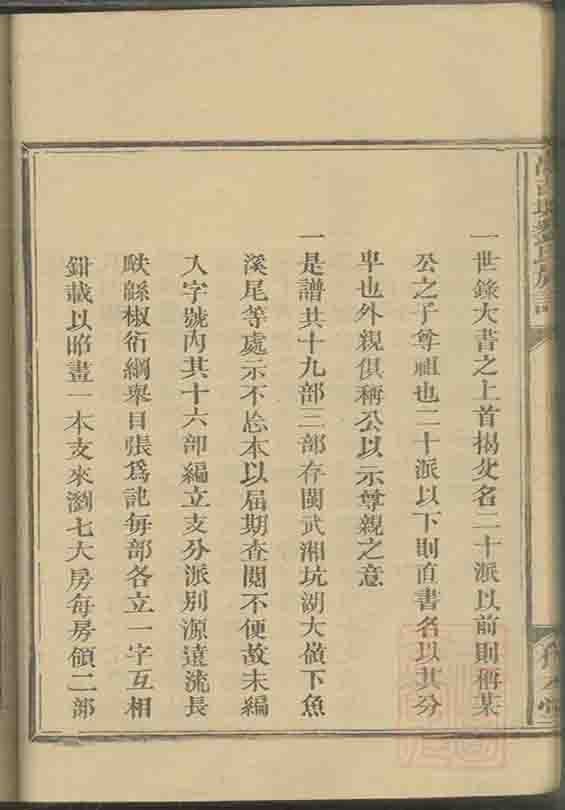 一世錄大書之上首揭父名二十派以前則稱某
公之子尊祖也二十派以下則直書名以其分
卑也外親俱稱公以示尊親之意
一是譜共十九部三部存閩武湘坑湖大嶺下魚
溪尾等處示不忘本以屆期查閱不便故未編
入字號內其十六部編立支分派別源遠流長
瓞緜椒衍綱舉目張為記每部各立一字互相
鉗載以昭畫一本支來瀏七大房每房領二部
氏族譜